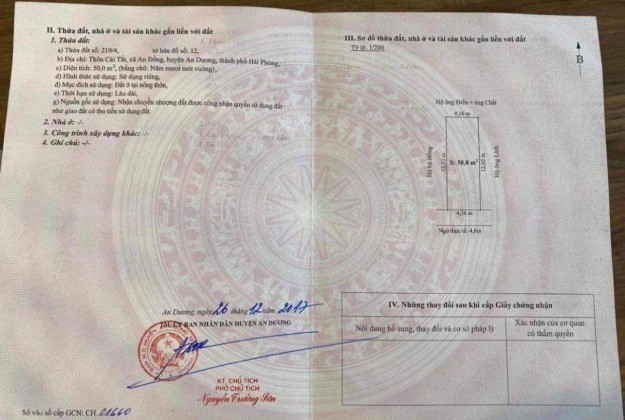 II. Thửa đất, nhà ở và tài sản khác gắn liền với đất
1. Thửa đất:
a) Thửa đất số: 219/4, tờ bản đồ số: 12,
b) Địa chỉ: Thôn Cái Tắt, xã An Đồng, huyện An Dương, thành phố Hải Phòng,
c) Diện tích: 50,0 m², (bằng chữ: Năm mươi mét vuông),
d) Hình thức sử dụng: Sử dụng riêng,
đ) Mục đích sử dụng: Đất ở tại nông thôn,
e) Thời hạn sử dụng: Lâu dài,
g) Nguồn gốc sử dụng: Nhận chuyển nhượng đất được công nhận quyền sử dụng đất
như giao đất có thu tiền sử dụng đất.
2. Nhà ở: -/-
3. Công trình xây dựng khác: -/-
4. Ghi chú: -/-
An Dương, ngày 26 tháng 12 năm 2017
TM. ỦY BAN NHÂN DÂN HUYỆN AN DƯƠNG
KT. CHỦ TỊCH
PHÓ CHỦ TỊCH
Nguyễn Trường Sơn
Số vào sổ cấp GCN: CH 01660
III. Sơ đồ thửa đất, nhà ở và tài sản khác gắn liền với đất
Tỷ lệ 1/200
B
Hộ ông Điều + ông Chất
4,16 m
Hộ bà Hồng
12,02 m
S: 50,0 m²
12,02 m
Hộ ông Linh
4,16 m
Ngõ thực tế: 4,0m
IV. Những thay đổi sau khi cấp Giấy chứng nhận
Nội dung bổ sung, thay đổi và cơ sở pháp lý
Xác nhận của cơ quan
có thẩm quyền